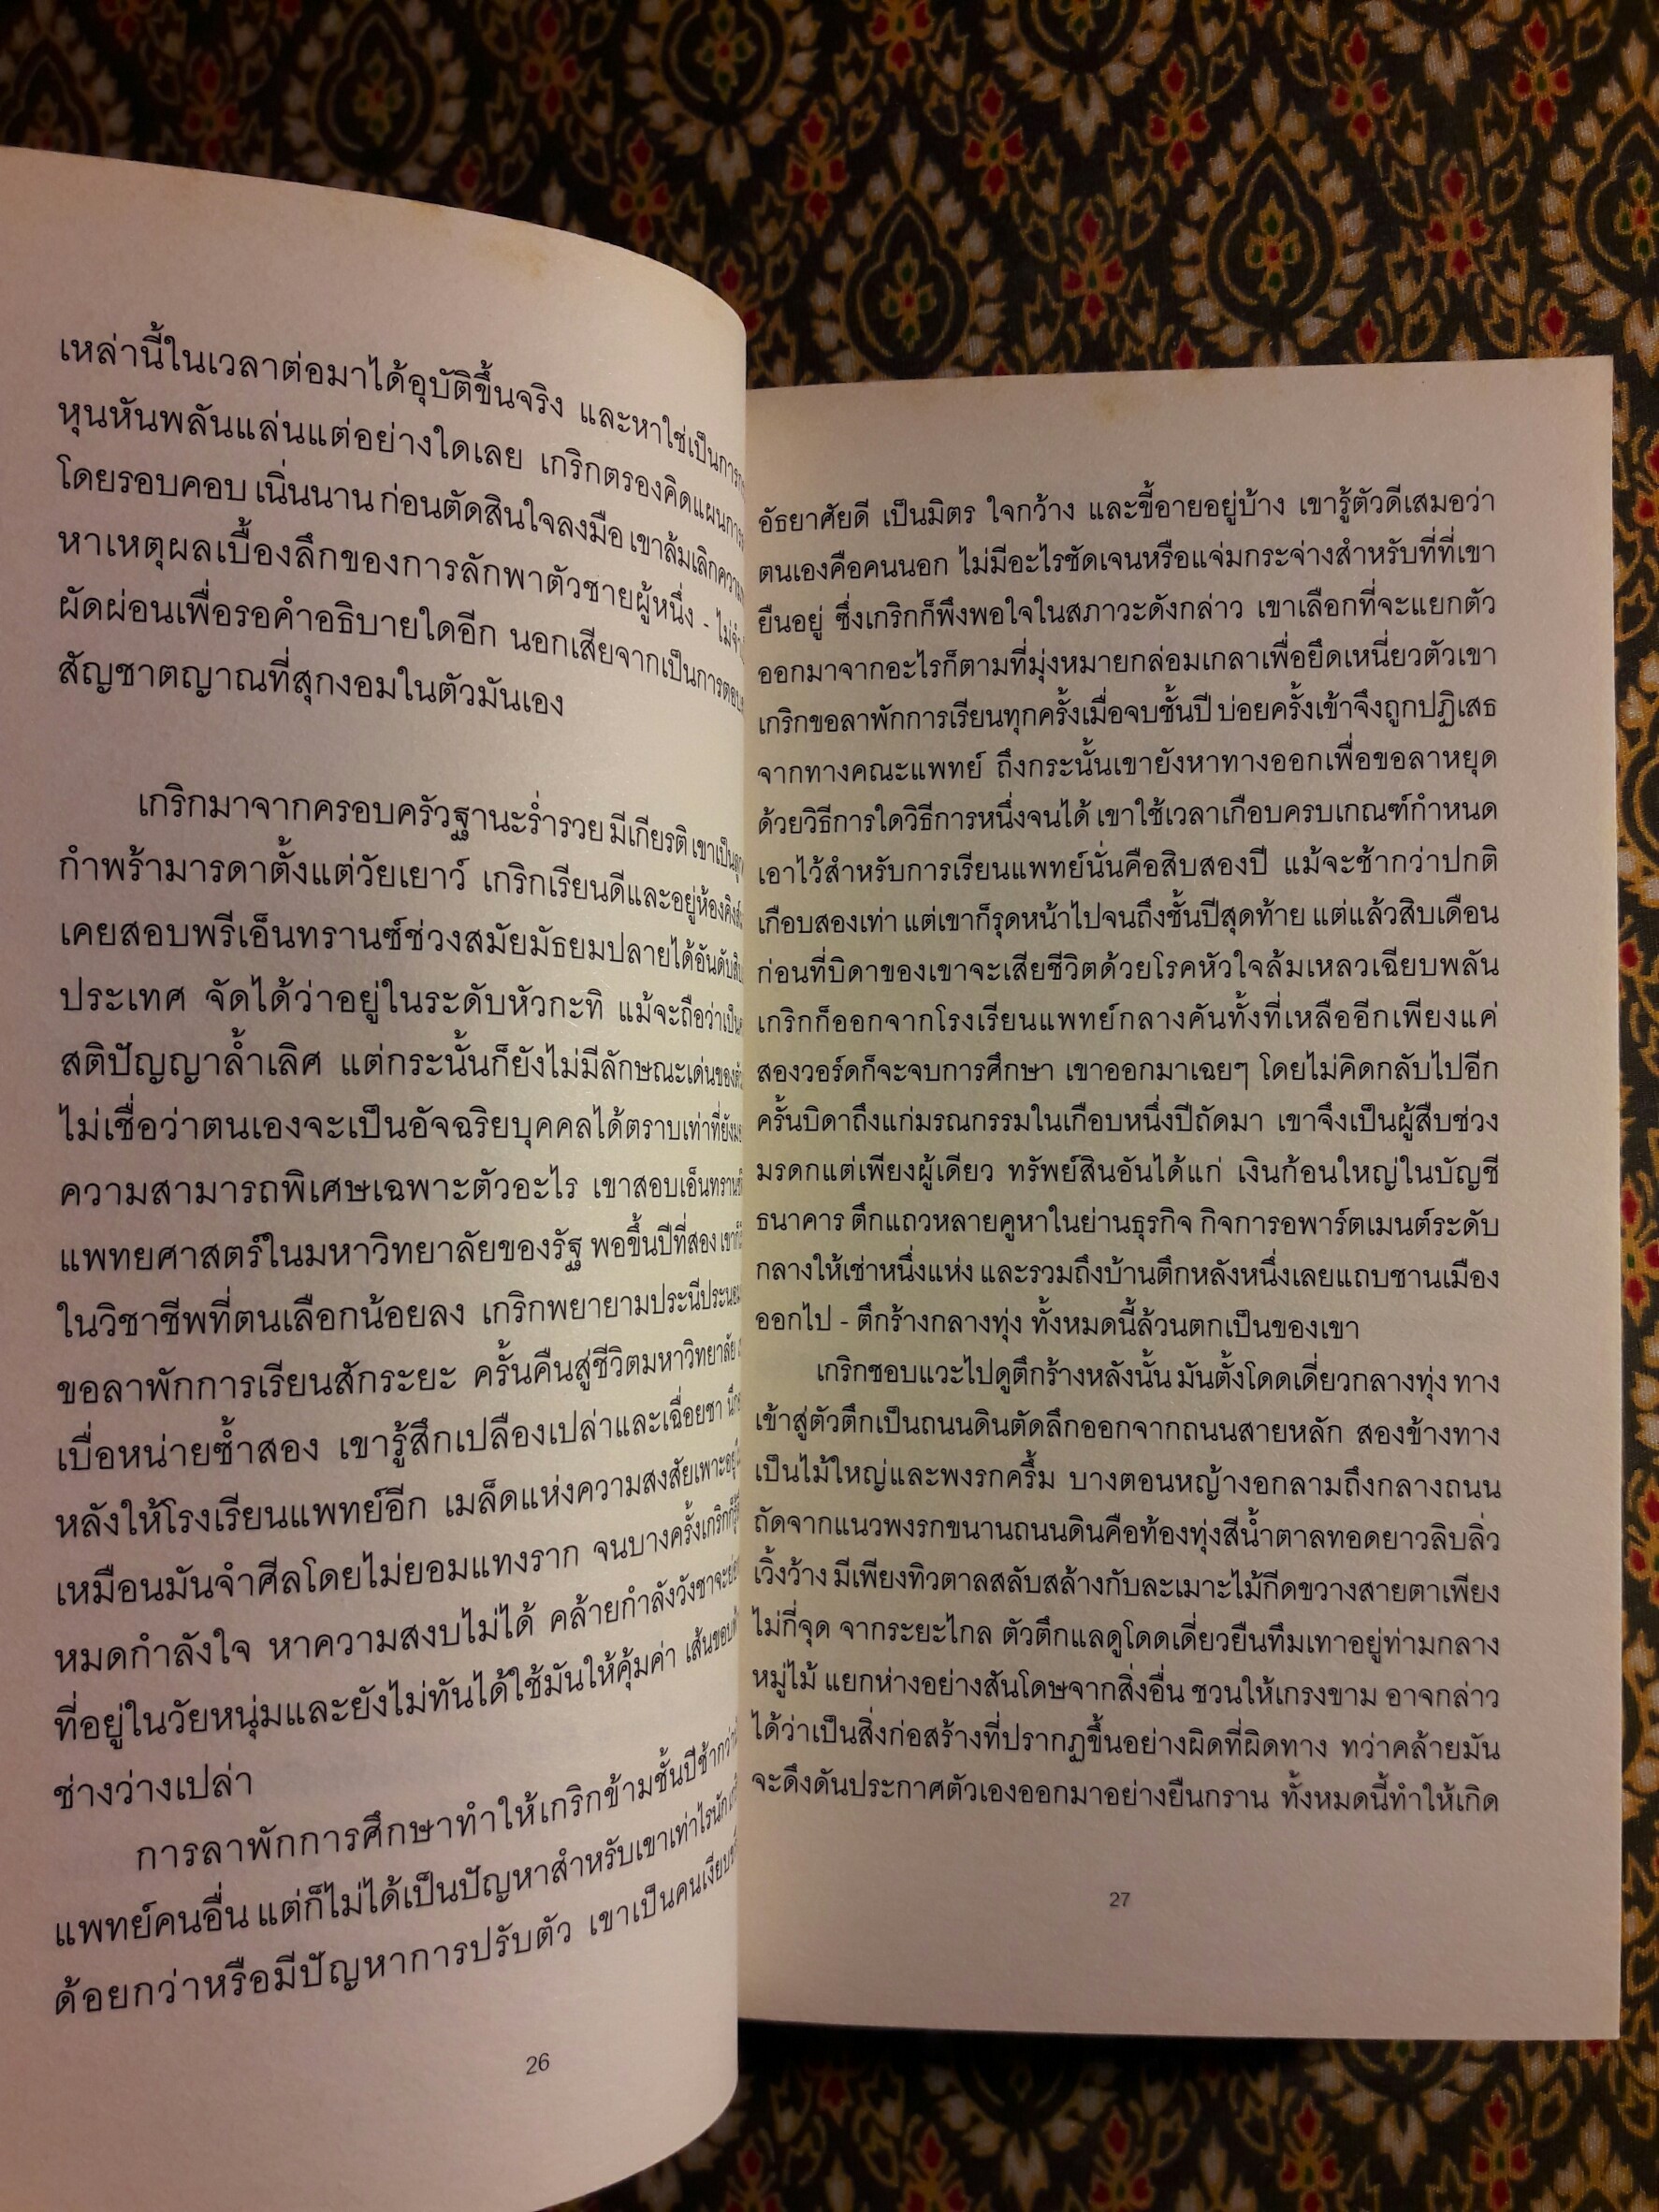 เหล่านี้ในเวลาต่อมาได้อุบัติขึ้นจริง และหาใช่เป็นการ
หุนหันพลันแล่นแต่อย่างใดเลย เกริกตรองคิดแผนการ
โดยรอบคอบ เนิ่นนาน ก่อนตัดสินใจลงมือ เขาล้มเลิก
หาเหตุผลเบื้องลึกของการลักพาตัวชายผู้หนึ่ง -
ผัดผ่อนเพื่อรอคำอธิบายใดอีก นอกเสียจากเป็นการ
สัญชาตญาณที่สุกงอมในตัวมันเอง
เกริกมาจากครอบครัวฐานะร่ำรวย มีเกียรติ เขาเป็น
กำพร้ามารดาตั้งแต่วัยเยาว์ เกริกเรียนดีและอยู่ห้อง
เคยสอบพรีเอ็นทรานซ์ช่วงสมัยมัธยมปลายได้อันดับ
ประเทศ จัดได้ว่าอยู่ในระดับหัวกะทิ แม้จะถือว่า
สติปัญญาล้ำเลิศ แต่กระนั้นก็ยังไม่มีลักษณะเด่นของ
ไม่เชื่อว่าตนเองจะเป็นอัจฉริยบุคคลได้ตราบเท่าที่
ความสามารถพิเศษเฉพาะตัวอะไร เขาสอบ
แพทยศาสตร์ในมหาวิทยาลัยของรัฐ พอขึ้นปีที่สอง
ในวิชาชีพที่ตนเลือกน้อยลง เกริกพยายาม
ขอลาพักการเรียนสักระยะ ครั้นคืนสู่ชีวิตมหาวิทยาลัย
เบื่อหน่ายซ้ำสอง เขารู้สึกเปลืองเปล่าและเฉื่อยชา
หลังให้โรงเรียนแพทย์อีก เมล็ดแห่งความสงสัยเพาะ
เหมือนมันจำศีลโดยไม่ยอมแทงราก จนบางครั้งเกริก
หมดกำลังใจ หาความสงบไม่ได้ คล้ายกำลังวังชาจะ
ที่อยู่ในวัยหนุ่มและยังไม่ทันได้ใช้มันให้คุ้มค่า เส้นขอบ
ช่างว่างเปล่า
การลาพักการศึกษาทำให้เกริกข้ามชั้นปีช้ากว่า
แพทย์คนอื่น แต่ก็ไม่ได้เป็นปัญหาสำหรับเขาเท่าไรนัก
ด้อยกว่าหรือมีปัญหาการปรับตัว เขาเป็นคนเงียบ
26
อัธยาศัยดี เป็นมิตร ใจกว้าง และขี้อายอยู่บ้าง เขารู้ตัวดีเสมอว่า
ตนเองคือคนนอก ไม่มีอะไรชัดเจนหรือแจ่มกระจ่างสำหรับที่ที่เขา
ยืนอยู่ ซึ่งเกริกก็พึงพอใจในสภาวะดังกล่าว เขาเลือกที่จะแยกตัว
ออกมาจากอะไรก็ตามที่มุ่งหมายกล่อมเกลาเพื่อยึดเหนี่ยวตัวเขา
เกริกขอลาพักการเรียนทุกครั้งเมื่อจบชั้นปี บ่อยครั้งเข้าจึงถูกปฏิเสธ
จากทางคณะแพทย์ ถึงกระนั้นเขายังหาทางออกเพื่อขอลาหยุด
ด้วยวิธีการใดวิธีการหนึ่งจนได้ เขาใช้เวลาเกือบครบเกณฑ์กำหนด
เอาไว้สำหรับการเรียนแพทย์นั่นคือสิบสองปี แม้จะช้ากว่าปกติ
เกือบสองเท่า แต่เขาก็รุดหน้าไปจนถึงชั้นปีสุดท้าย แต่แล้วสิบเดือน
ก่อนที่บิดาของเขาจะเสียชีวิตด้วยโรคหัวใจล้มเหลวเฉียบพลัน
เกริกก็ออกจากโรงเรียนแพทย์กลางคันทั้งที่เหลืออีกเพียงแค่
สองวอร์ดก็จะจบการศึกษา เขาออกมาเฉยๆ โดยไม่คิดกลับไปอีก
ครั้นบิดาถึงแก่มรณกรรมในเกือบหนึ่งปีถัดมา เขาจึงเป็นผู้สืบช่วง
มรดกแต่เพียงผู้เดียว ทรัพย์สินอันได้แก่ เงินก้อนใหญ่ในบัญชี
ธนาคาร ตึกแถวหลายคูหาในย่านธุรกิจ กิจการอพาร์ตเมนต์ระดับ
กลางให้เช่าหนึ่งแห่ง และรวมถึงบ้านตึกหลังหนึ่งเลยแถบชานเมือง
ออกไป - ตึกร้างกลางทุ่ง ทั้งหมดนี้ล้วนตกเป็นของเขา
เกริกชอบแวะไปดูตึกร้างหลังนั้น มันตั้งโดดเดี่ยวกลางทุ่ง ทาง
เข้าสู่ตัวตึกเป็นถนนดินตัดลึกออกจากถนนสายหลัก สองข้างทาง
เป็นไม้ใหญ่และพงรกครึ้ม บางตอนหญ้างอกลามถึงกลางถนน
ถัดจากแนวพงรกขนานถนนดินคือท้องทุ่งสีน้ำตาลทอดยาวลิบลิ่ว
เวิ้งว้าง มีเพียงทิวตาลสลับสล้างกับละเมาะไม้กีดขวางสายตาเพียง
ไม่กี่จุด จากระยะไกล ตัวตึกแลดูโดดเดี่ยวยืนทึมเทาอยู่ท่ามกลาง
หมู่ไม้ แยกห่างอย่างสันโดษจากสิ่งอื่น ชวนให้เกรงขาม อาจกล่าว
ได้ว่าเป็นสิ่งก่อสร้างที่ปรากฏขึ้นอย่างผิดที่ผิดทาง ทว่าคล้ายมัน
จะดึงดันประกาศตัวเองออกมาอย่างยืนกราน ทั้งหมดนี้ทำให้เกิด
27